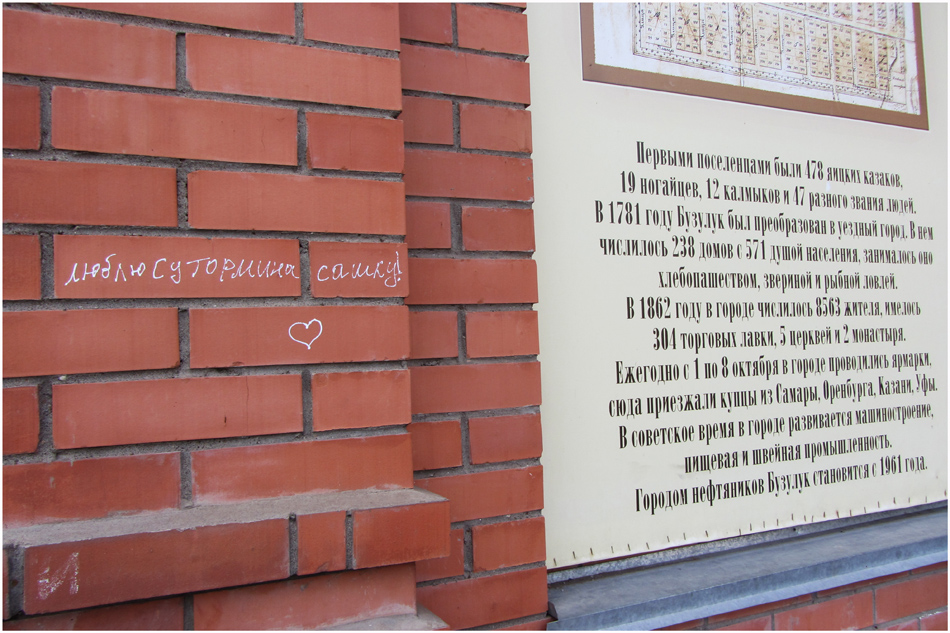 люблю Сутормина сашку!
Первыми поселенцами были 478 яицких казаков,
19 ногайцев, 12 калмыков и 47 разного звания людей.
В 1781 году Бузулук был преобразован в уездный город. В нем
числилось 238 домов с 571 душой населения, занималось оно
хлебопашеством, звериной и рыбной ловлей.
В 1862 году в городе числилось 8563 жителя, имелось
304 торговых лавки, 5 церквей и 2 монастыря.
Ежегодно с 1 по 8 октября в городе проводились ярмарки,
сюда приезжали купцы из Самары, Оренбурга, Казани, Уфы.
В советское время в городе развивается машиностроение,
пищевая и швейная промышленность.
Городом нефтяников Бузулук становится с 1961 года.